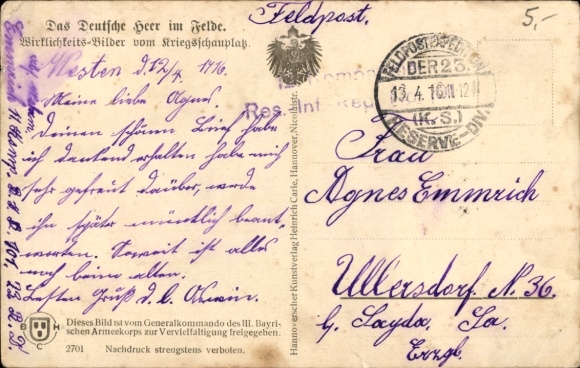 Das Deutsche Heer im Felde.
Wirklichkeits-Bilder vom Kriegsschauplatz.
Feldpost.
5,-
Westen d. 12/4 1916.
Meine liebe Agnes.
Deinen schönen Brief habe
ich dankend erhalten habe mich
sehr gefreut darüber, werde
ihn später mündlich beant
worten. Soweit ist alles
noch beim alten.
Besten Gruß d. l. Erwin.
FELDPOSTEXPEDITION
DER 23.
13.4.16 11-12
(K.S.)
RESERVE-DIV.
Res. Inf. Reg.
Frau
Agnes Emmrich
Ullersdorf N. 36.
b. Sayda, Sa.
Erzgb.
Hannoverscher Kunstverlag Heinrich Carle, Hannover, Nicolaistr.
B H
C
Dieses Bild ist vom Generalkommando des III. Bayri-
schen Armeekorps zur Vervielfältigung freigegeben.
2701 Nachdruck strengstens verboten.